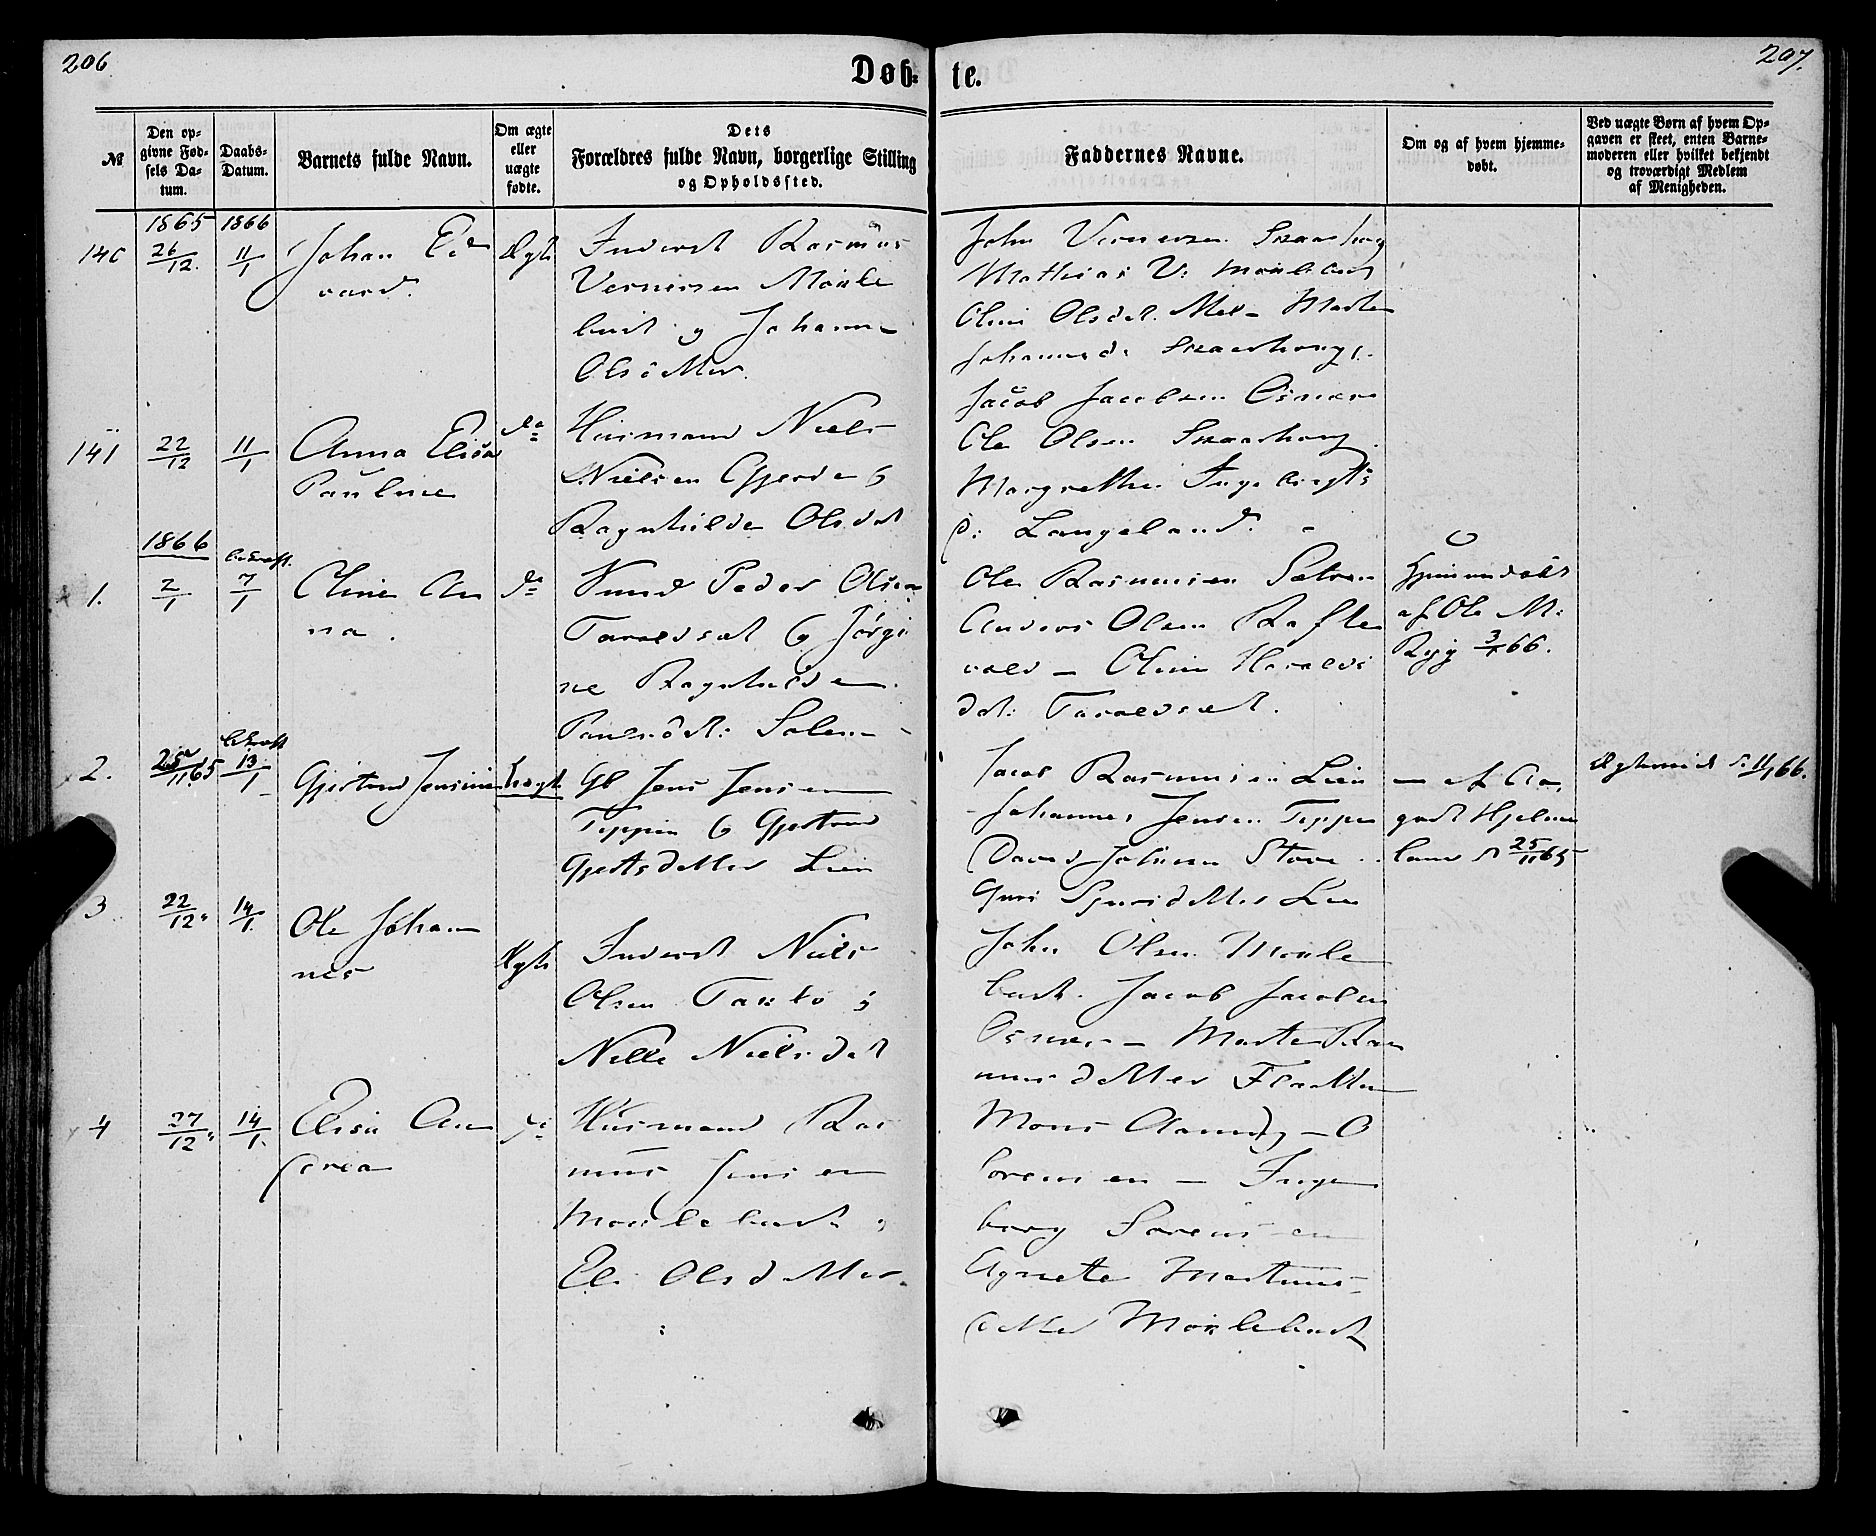 206
207.
Døb-
te.
№
Den op-
givne Fød-
sels Da-
tum.
Daabs-
Datum.
Barnets fulde Navn.
Om ægte
eller
uægte
fødte.
Dets
Forældres fulde Navn, borgerlige Stilling
og Opholdssted.
Faddernes Navne.
Om og af hvem hjemme-
døbt.
Ved uægte Børn af hvem Op-
gaven er skeet, enten Barne-
moderen eller hvilket bekjendt
og troværdigt Medlem
af Menigheden.
1865
1866
26/12.
11/1
Johan Ed
vard.
Ægte
Inderst Rasmus
Vernersen Moule
bust og Johanne
Olsdatter.
John Vernersen Skaarhoug
Mathias V: Moulebust
Oline Olsdat. Marte
Johannesd: Skaarhoug.
Jacob Jacobsen Osnæs
141
22/12
11/1
Anna Elisa
Pauline
do
Huusmand Niels
Nielsen Gjerde &
Ragnhilde Olsdat
Ole Olsen Skaarhoug
Margrethe Ingebrigts
d: Langeland.
1866
1.
2/1
bekræft.
7/1
Oline An
na.
do
Peder Olsen
Taraldset & Jørgi
ne Ragnhilde
Ole Rasmussen Sætre
Anders Olsen Rafte
vold - Oline Haralds
dat: Taraldset.
Hjemmedøbt
af Ole M:
Ryg 3/1 66.
2.
25/11 65
bekræft
13/1
Gjertrud Jensine
Uægte
Jens Jensen
Teppen & Gjertrud
Gjertsdatter Lien
Jacob Rasmussen Lien
Johannes Jensen Teppen
David Johnsen Stove
Guri Sjursdatter Lien
- af
Hjelme
land d 25/11 65
d. 11/1 66.
3
22/12
14/1.
Ole Johan
nes
Ægte
Inderst Niels
Olsen
Nille Nielsdat
John Olsen Moule
bust. Jacob Jacobsen
Osnæs - Marte Ras
musdatter Flaathen
4
27/12
14/1.
Elisa An
drea
do
Huusmand Ras
mus Jensen
Moulebust &
Eli Olsdatter.
Mons Aamdg - O
Sorensen - Inge
borg Sorensen
Agnete Martinus
datter Moulebust